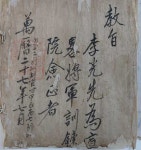 教旨
李光先為宣
略將軍訓鍊
院僉正者
萬曆二十七年七月